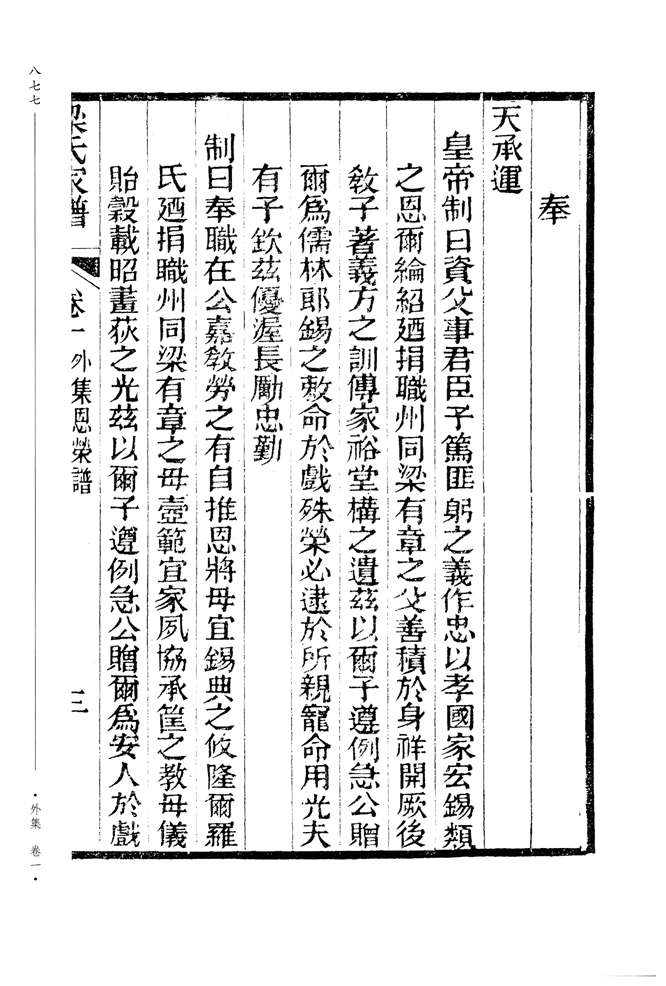 奉
天承運
皇帝制曰資父事君臣子篤匪躬之義作忠以孝國家宏錫類
之恩爾綸紹廼捐職州同梁有章之父善積於身祥開厥後
敎子著義方之訓傳家裕堂構之遺茲以爾子遵例急公贈
爾爲儒林郎錫之敕命於戲殊榮必逮於所親寵命用光夫
有子欽茲優渥長勵忠勤
制曰奉職在公嘉敎勞之有自推恩將母宜錫典之攸隆爾羅
氏廼捐職州同梁有章之母壼範宜家夙協承筐之教母儀
貽穀載昭畫荻之光茲以爾子遵例急公贈爾爲安人於戲
梁氏家譜 卷一 外集恩榮譜 三
八七七
·外集 卷一·